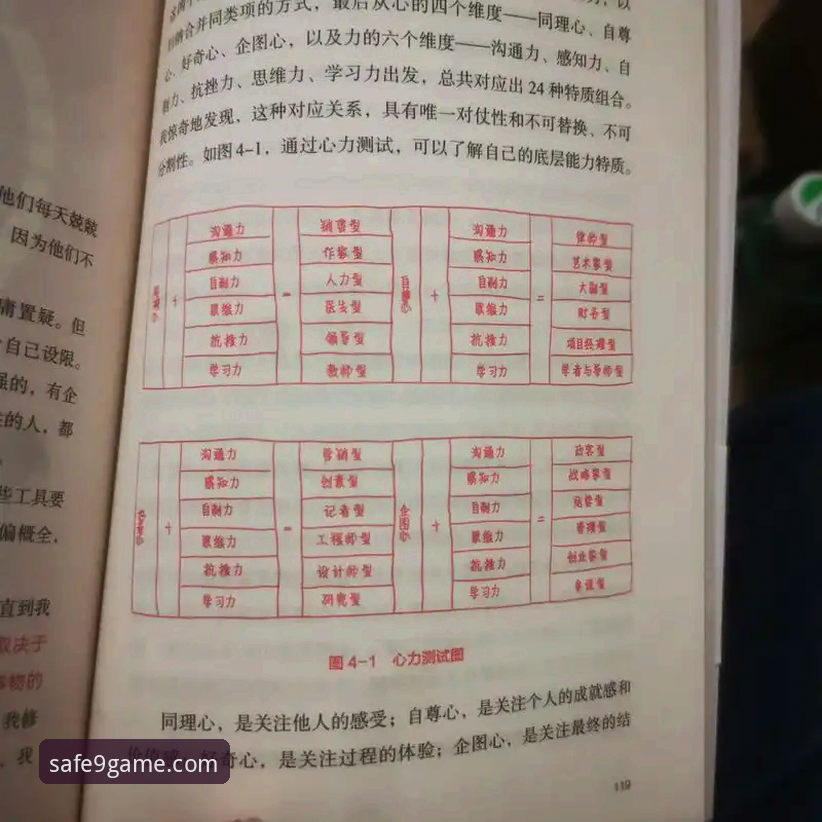 归纳合并同类项的方式，最后从心的四个维度——同理心、自尊
心、好奇心、企图心，以及力的六个维度——沟通力、感知力、自
制力、抗挫力、思维力、学习力出发，总共对应出 24 种特质组合。
我惊奇地发现，这种对应关系，具有唯一对仗性和不可替换、不可
分割性。如图 4-1，通过心力测试，可以了解自己的底层能力特质。
他们每天兢兢
因为他们不
庸置疑。但
自己设限。
强的，有企
的人，都
些工具要
偏概全，
直到我
取决于
物的
我修
我
+
沟通力
感知力
自制力
思维力
抗挫力
学习力
=
销售型
作家型
人力型
医生型
领导型
教师型
自尊心
+
沟通力
感知力
自制力
思维力
抗挫力
学习力
=
律师型
艺术家型
大副型
财务型
项目经理型
学者与导师型
好奇心
+
沟通力
感知力
自制力
思维力
抗挫力
学习力
=
营销型
创意型
记者型
工程师型
设计师型
研究型
企图心
+
沟通力
感知力
自制力
思维力
抗挫力
学习力
=
政客型
战略家型
运营型
管理型
创业家型
图 4-1 心力测试图
同理心，是关注他人的感受；自尊心，是关注个人的成就感和
价值感；好奇心，是关注过程的体验；企图心，是关注最终的结
119
safe9game.com